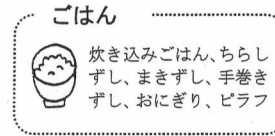 ごはん
炊き込みごはん、ちらし
ずし、まきずし、手巻き
ずし、おにぎり、ピラフ